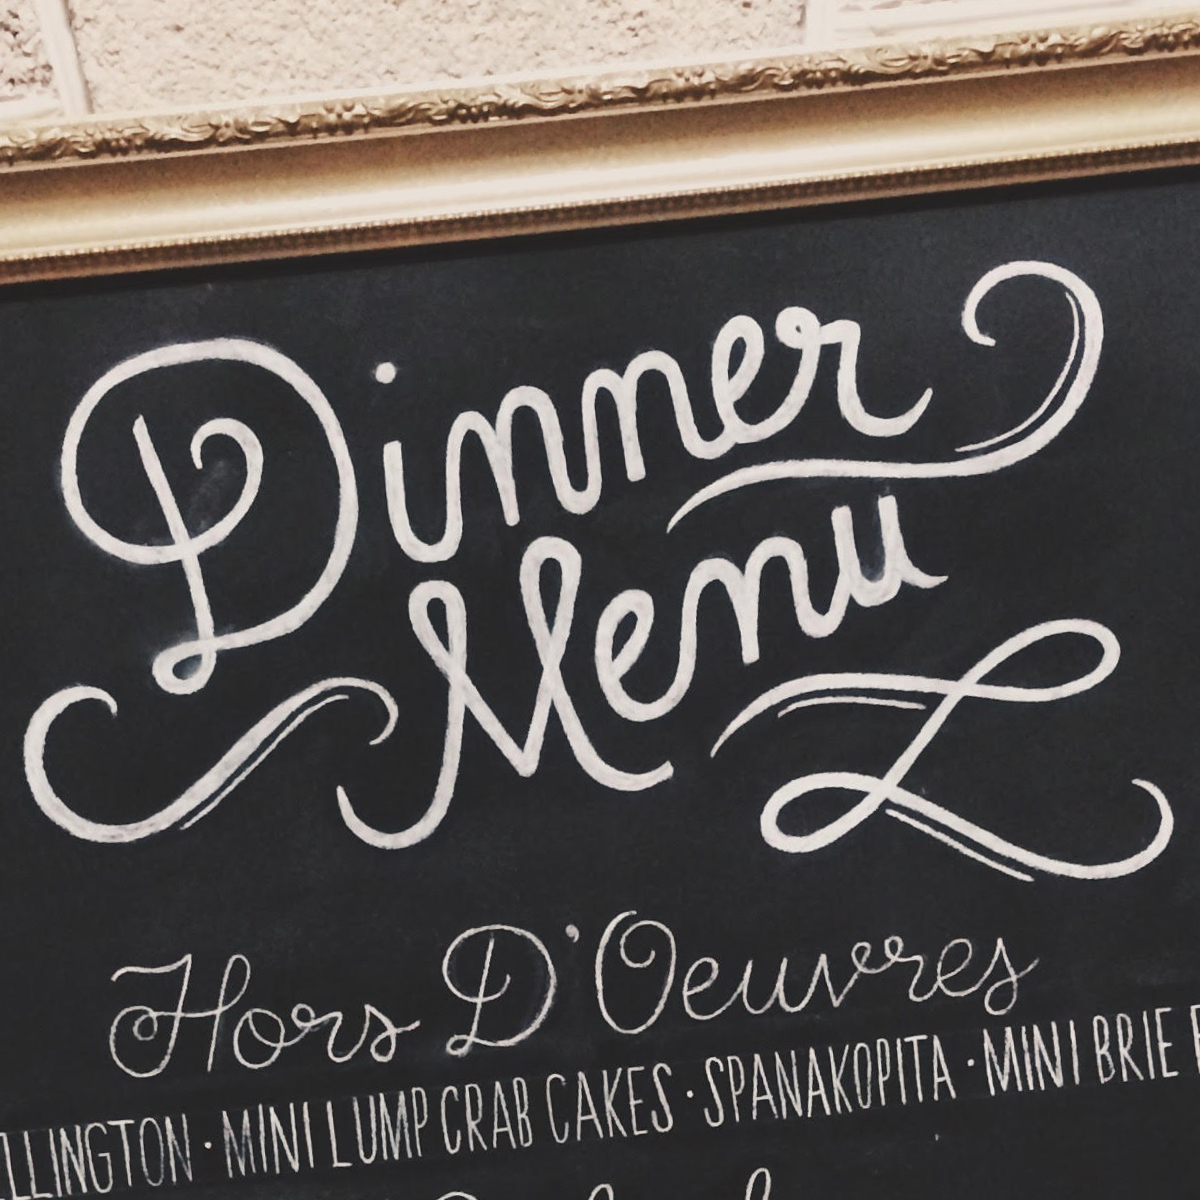 Dinner
Menu
Hors D'Oeuvres
LLINGTON · MINI LUMP CRAB CAKES · SPANAKOPITA · MINI BRIE